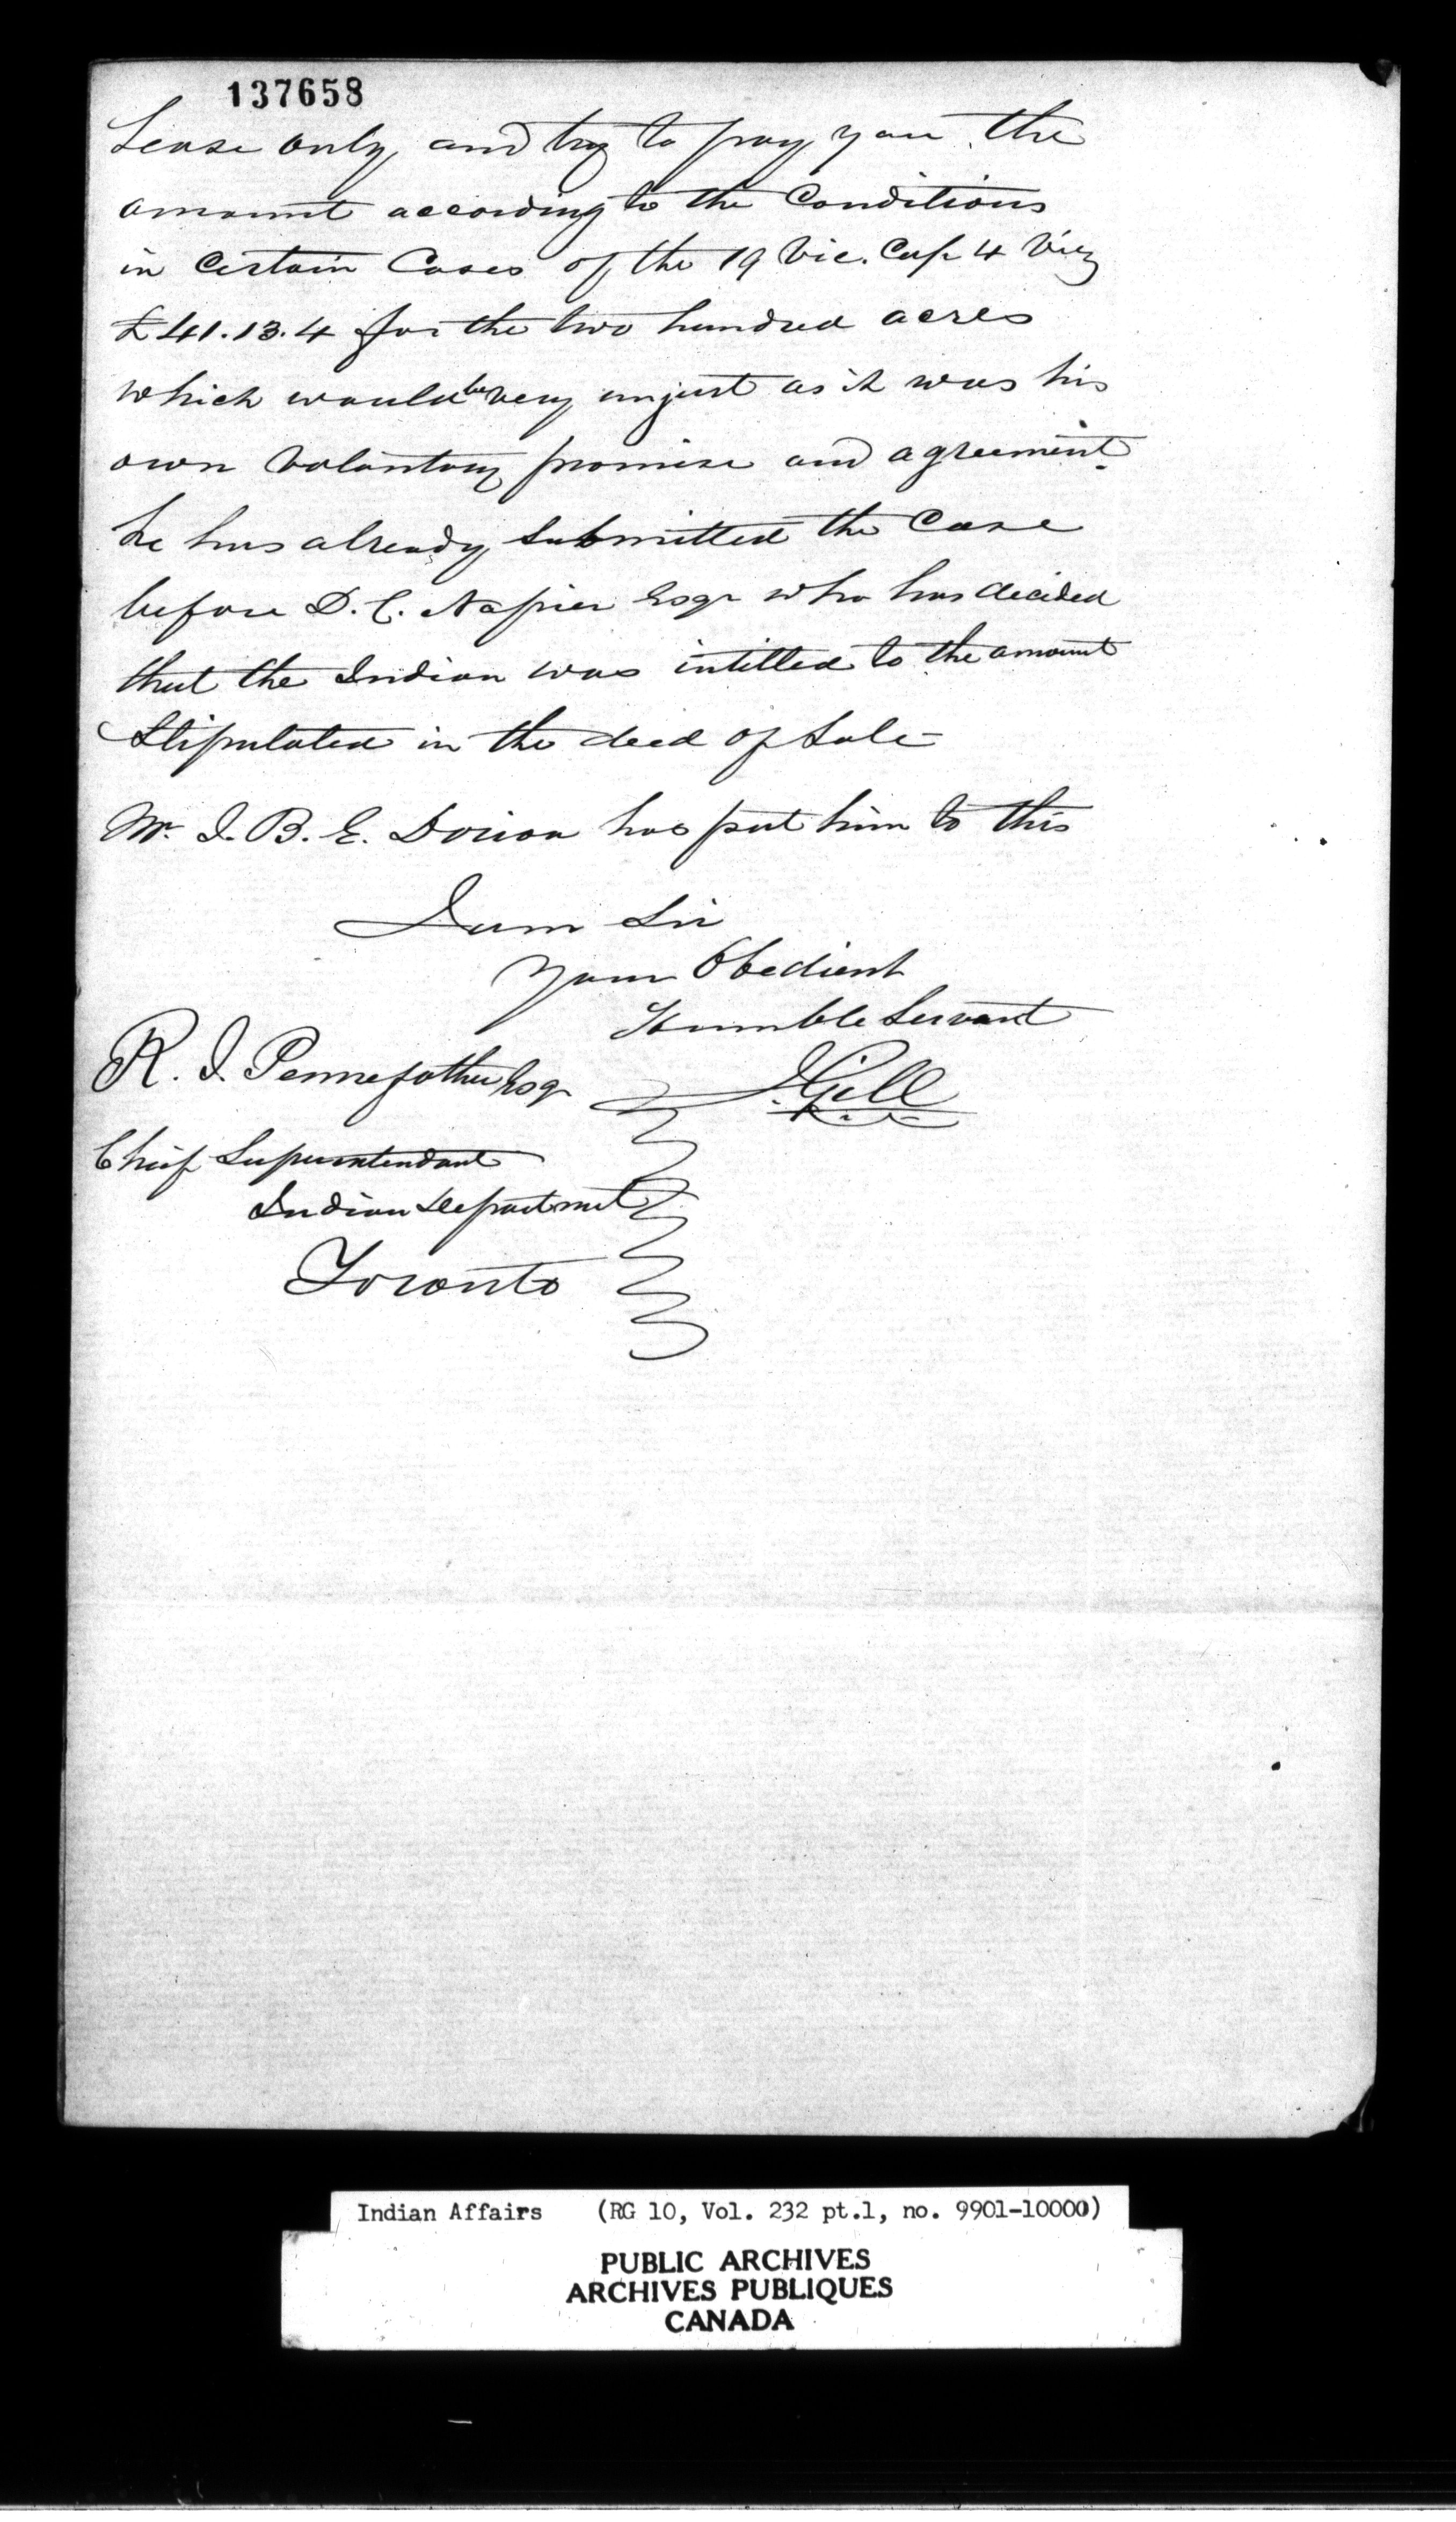 137658
Lease only and try to pay you the
amount according to the Conditions
in Certain Cases of the 19 Vic. Cap 4 Viz
£41.13.4 for the two hundred acres
which would be very unjust as it was his
own Voluntary promise and agreement.
he has already submitted the Case
before D. C. Napier Esqr who has decided
that the Indian was intitled to the amount
Stipulated in the deed of Sale
Mr. J. B. E. Dorion has put him to this
I am Sir
Your Obedient
Humble Servant
J. Gill
R. J. Pennefather Esqr
Chief Superintendant
Indian Department
Toronto
Indian Affairs (RG 10, Vol. 232 pt.1, no. 9901-10000)
PUBLIC ARCHIVES
ARCHIVES PUBLIQUES
CANADA